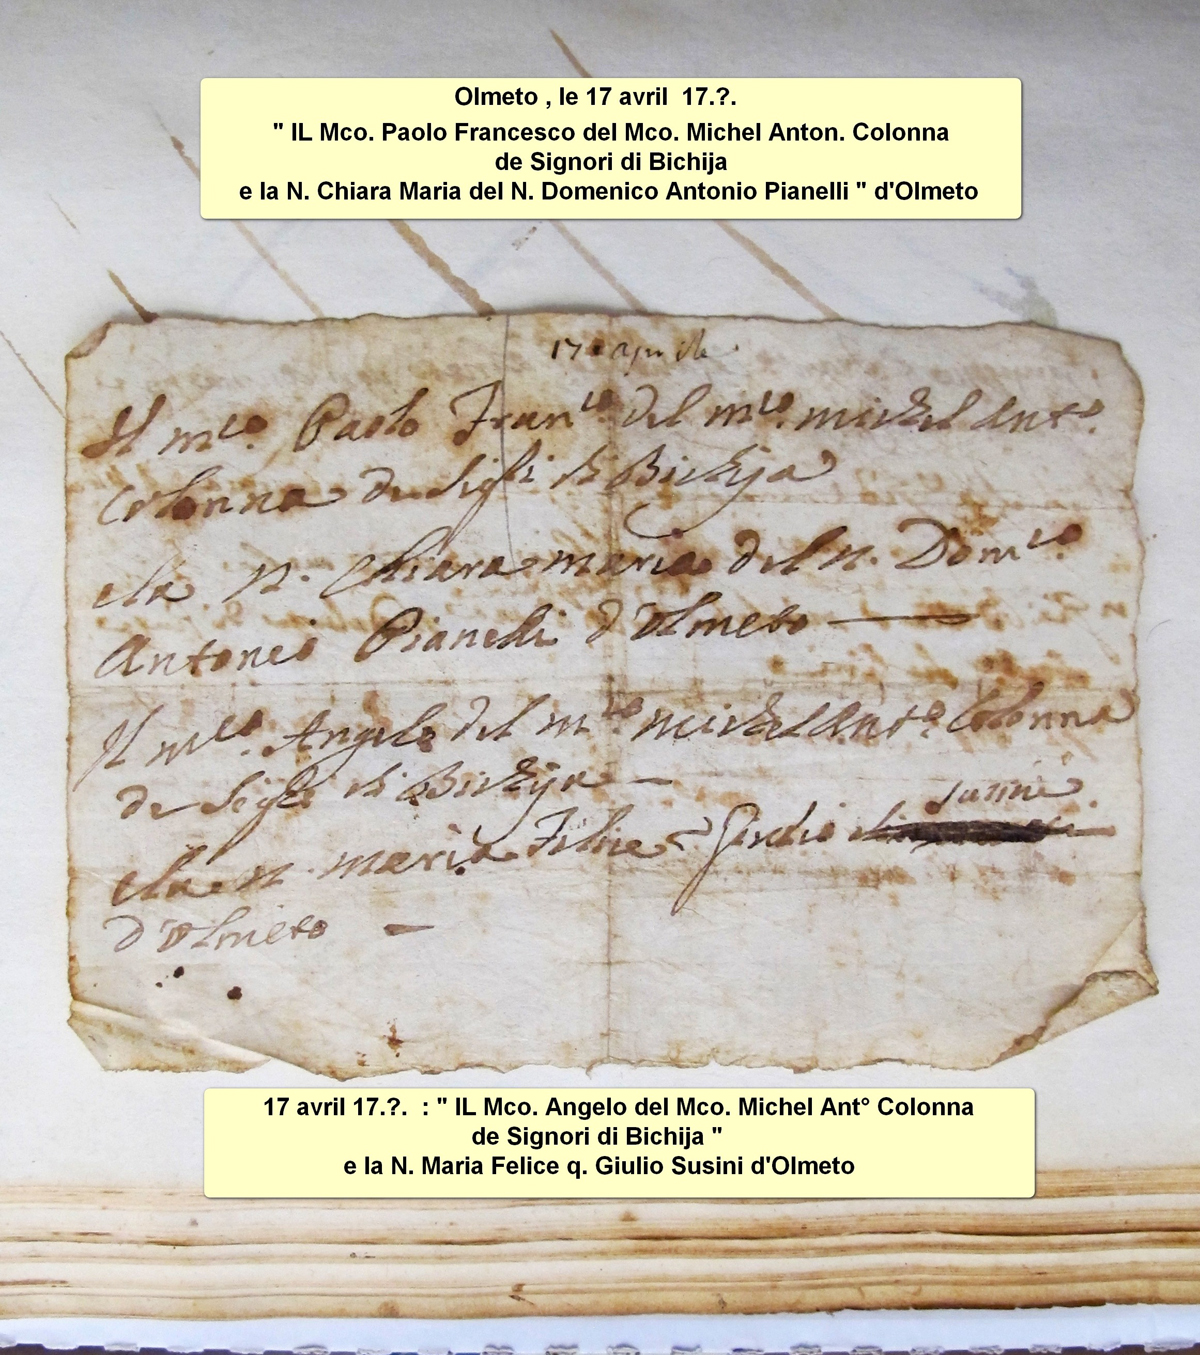 Olmeto , le 17 avril 17.?.
" IL Mco. Paolo Francesco del Mco. Michel Anton. Colonna
de Signori di Bichija
e la N. Chiara Maria del N. Domenico Antonio Pianelli " d'Olmeto
17 aprile
Il mco. Paolo Franco. del mco. michel Anto.
Colonna de Sigri di Bichija
e la N. Chiara maria del N. Domco
Antonio Pianelli d'Olmeto
Il mco. Angelo del mco. michel Anto. Colonna
de Sigri di Bichija
Susini
e la N. maria Felice q. Giulio
d'Olmeto
17 avril 17.?. : " IL Mco. Angelo del Mco. Michel Ant° Colonna
de Signori di Bichija "
e la N. Maria Felice q. Giulio Susini d'Olmeto